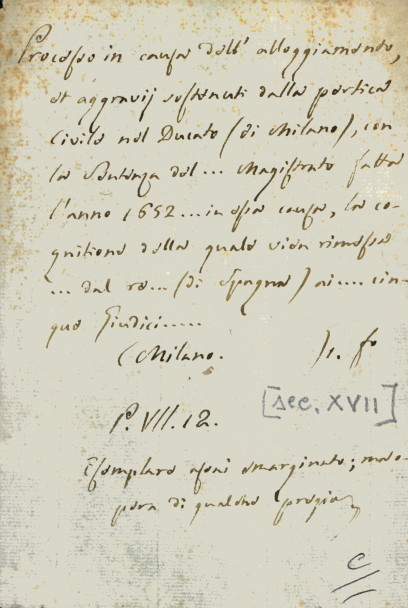 Processo in causa dell' alloggiamento,
et aggravij sostenuti dalla portica
Civile nel Ducato (di Milano), con
la Sentenza del ... Magistrato fatta
l'anno 1652 ... in essa causa, la co-
gnitione della quale vien rimessa
... dal re ... (di Spagna) ai .... cin-
que Giudici .....
(Milano. ) 1. fo
[sec. XVII]
P. VII. 12.
Esemplare assai smarginato; ma o-
pera di qualche pregio
C